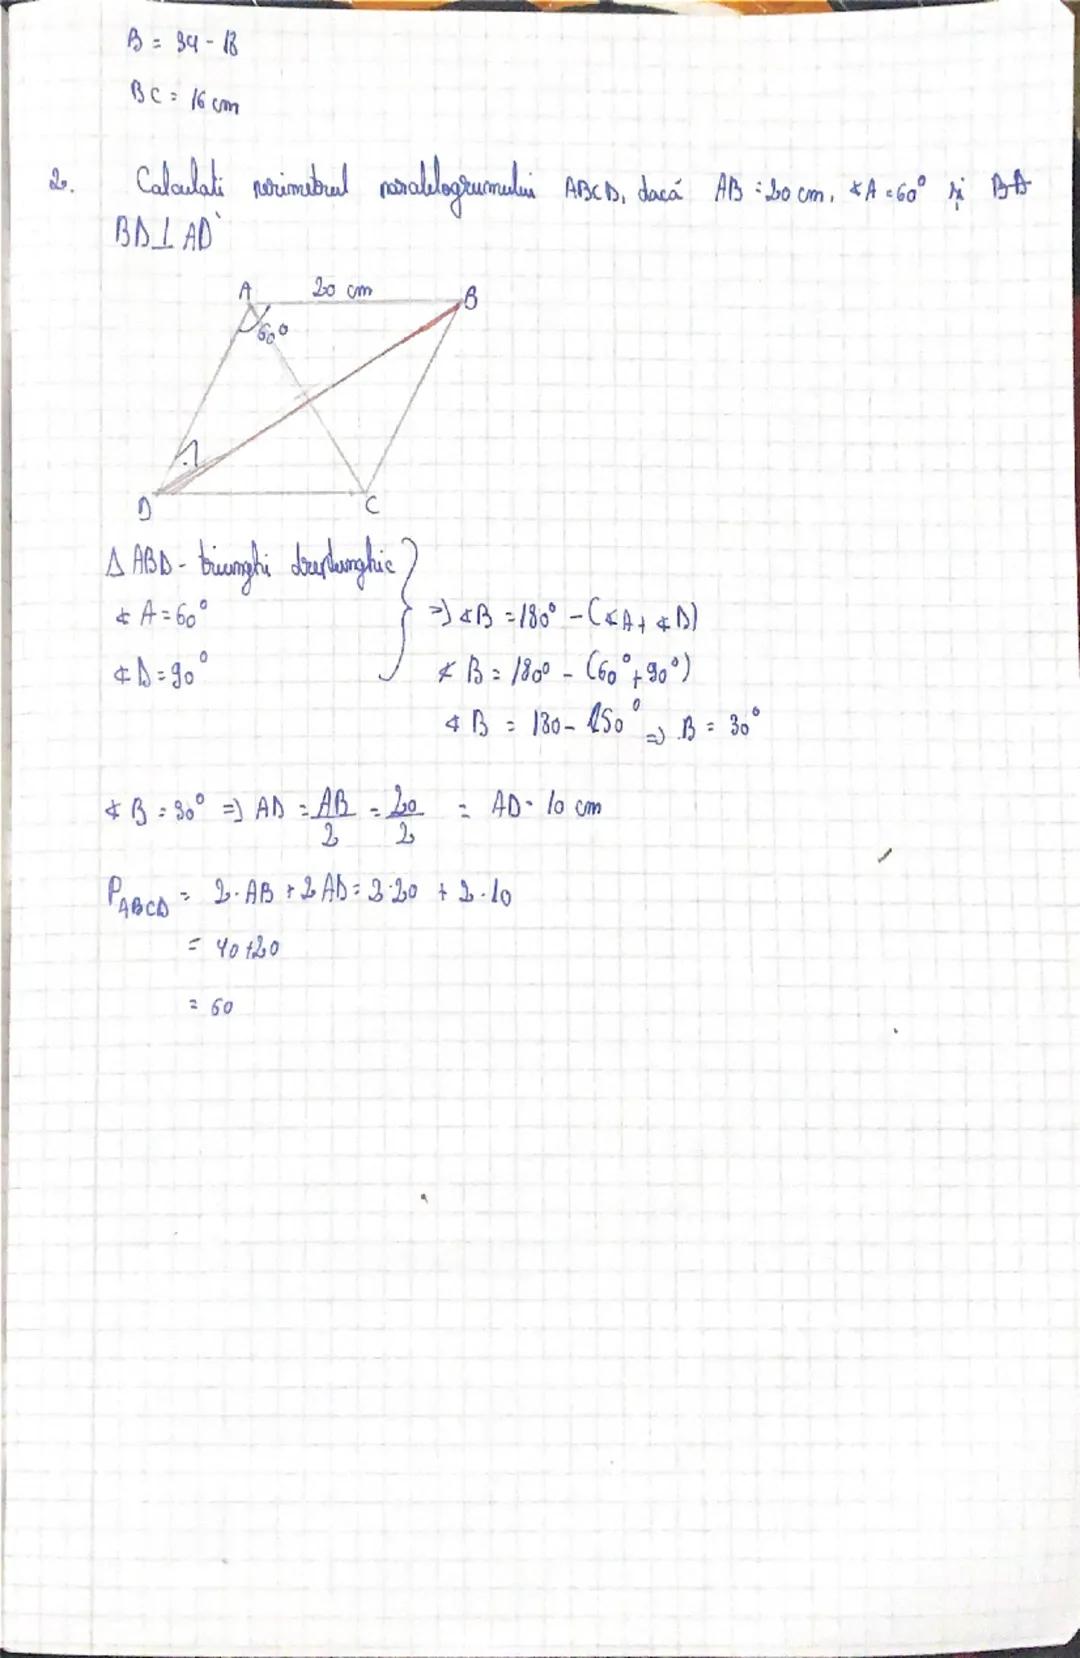 B = 34 - 18
BC = 16 cm
2. Calculati perimetrul paralelogramului ABCD, dacă AB = 20 cm, ∢A = 60° și BD
BD ⊥ AD
A 20 cm B
60°
D C
Δ ABD - triunghi dreptunghic
∢ A = 60° => ∢B = 180° - (∢A + ∢D)
∢ D = 90° ∢ B = 180° - (60° + 90°)
∢ B = 180 - 150° => B = 30°
∢ B = 30° => AD = AB/2 = 20/2 = AD = 10 cm
P ABCD = 2 · AB + 2 AD = 2 · 20 + 2 · 10
= 40 + 20
= 60